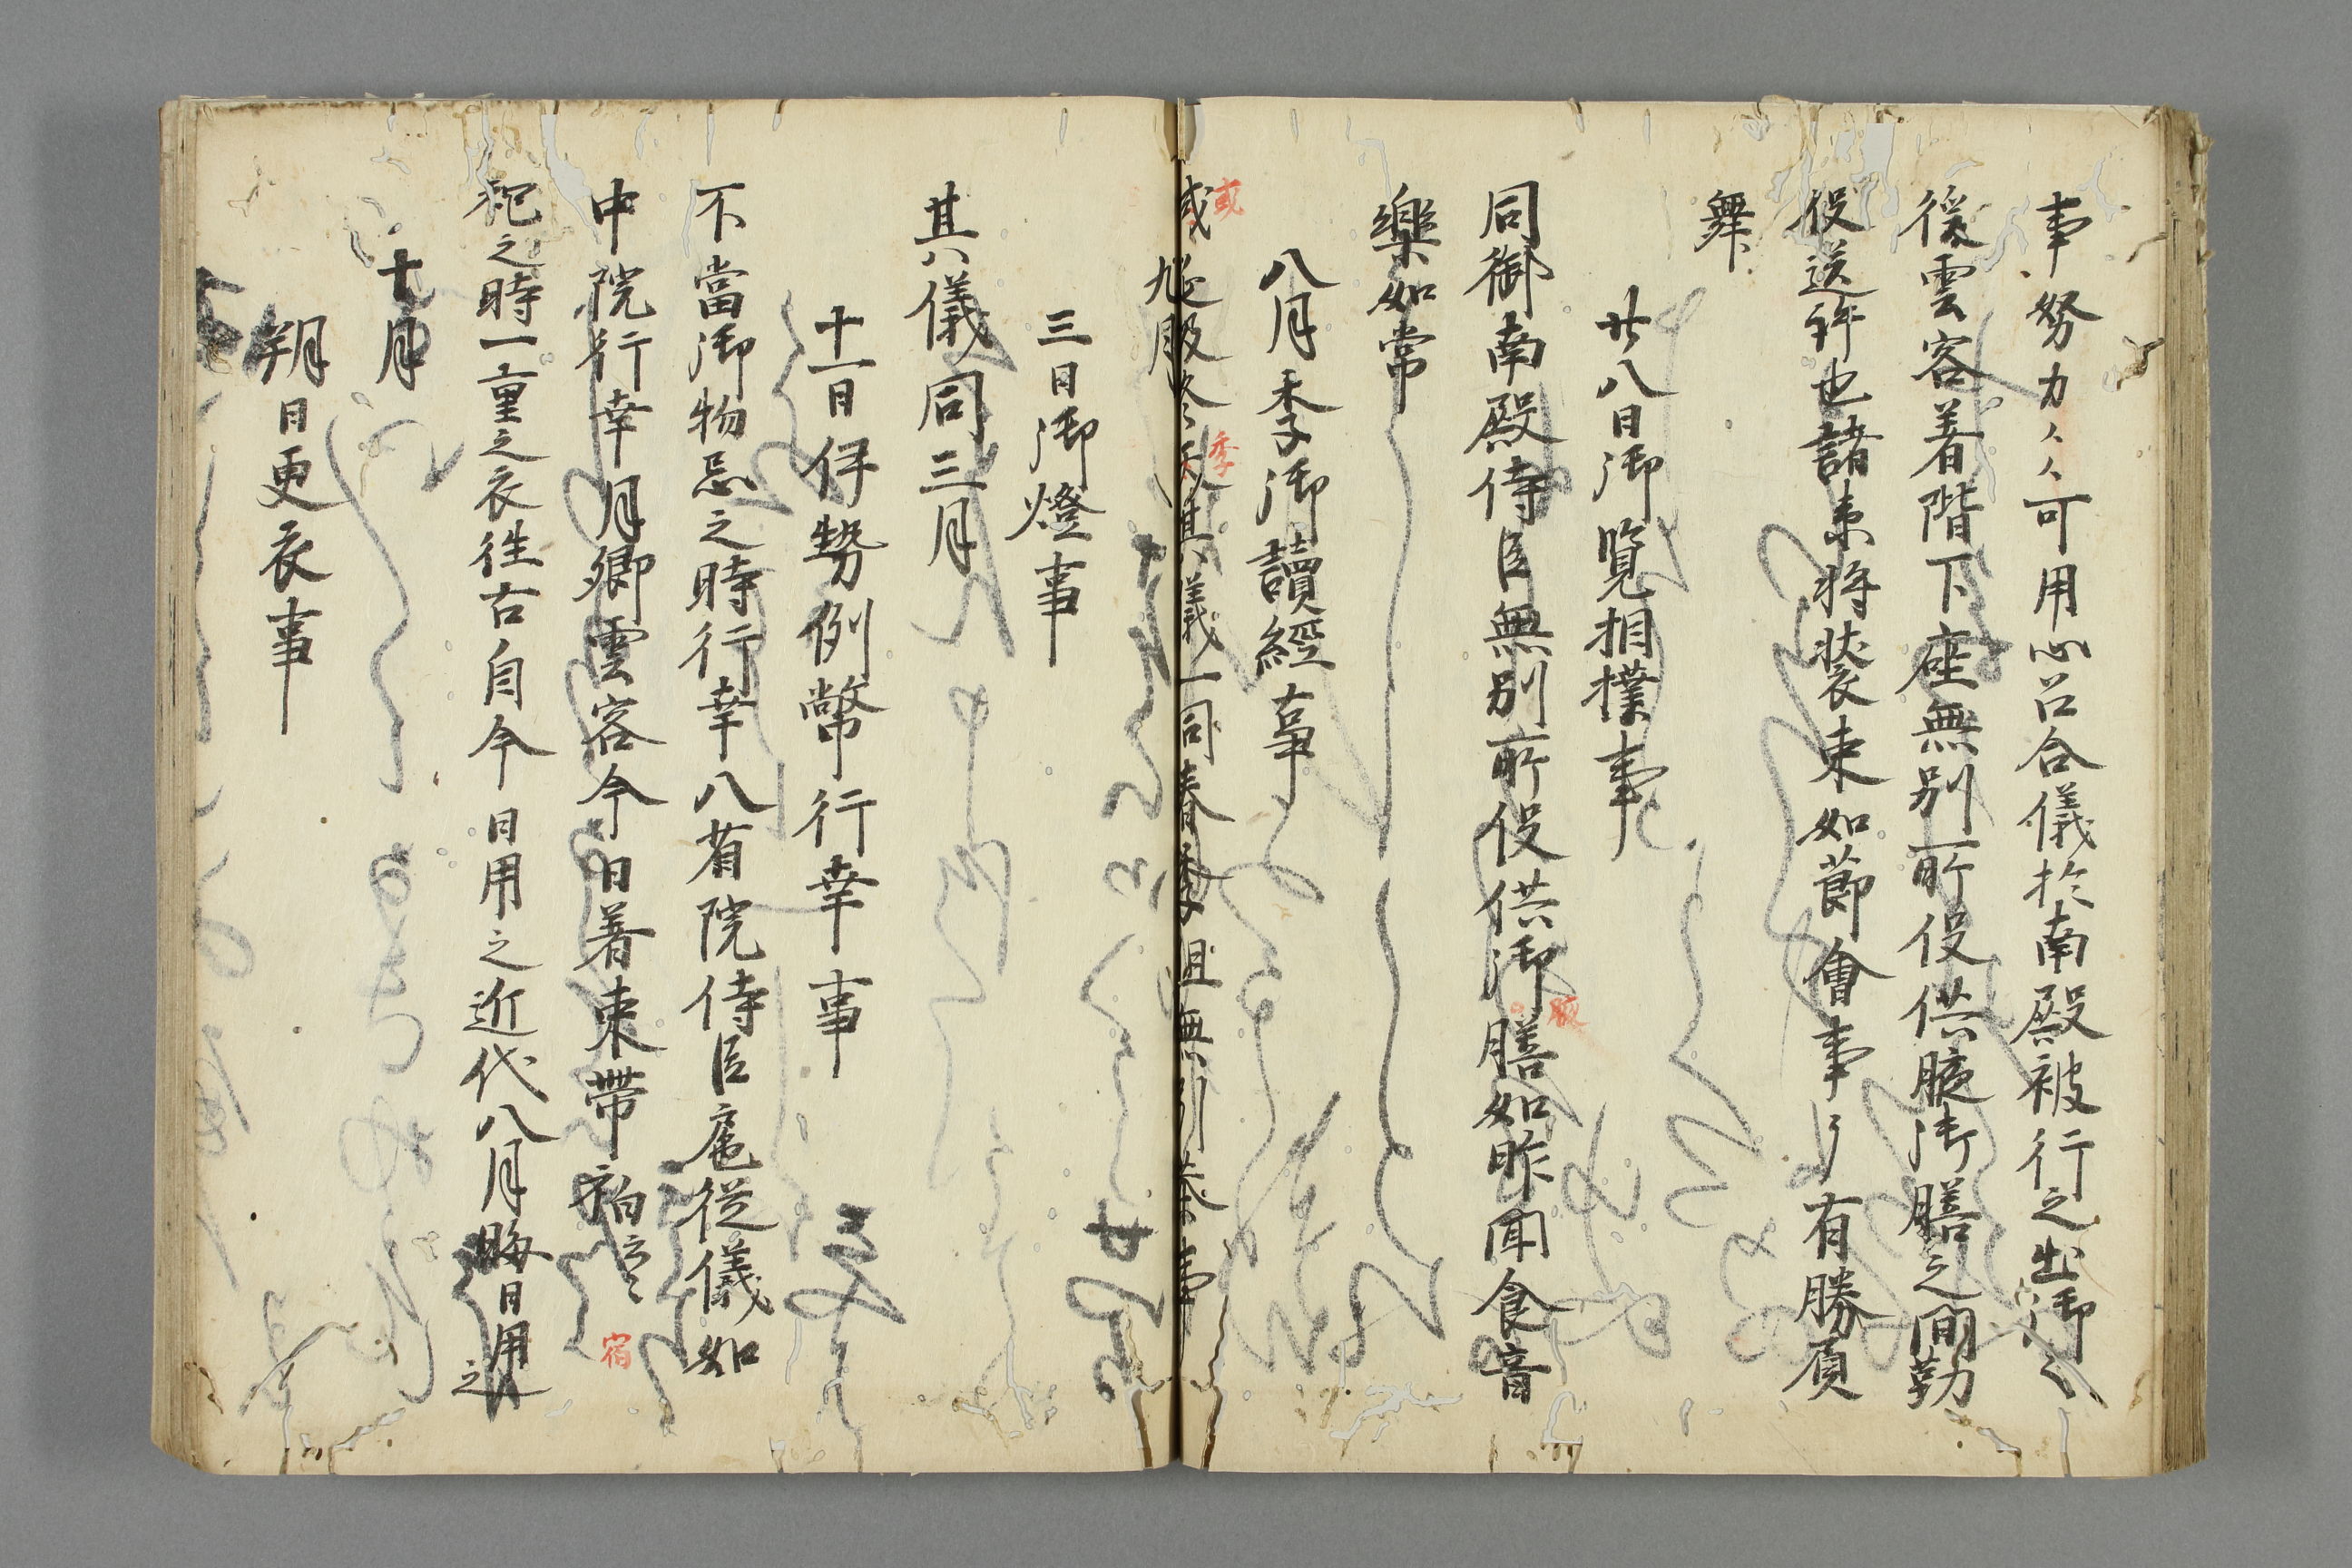 事努力〻〻可用心召合儀於南殿被行之出御之
後雲客着階下座無別所役供腋御膳之間勤
役送許也諸束将装束如節會事了有勝負
舞
廿八日御覧相撲事
同御南殿侍臣無別所役供御膳如昨聞食音
腋
樂如常
八月季御讀經事
或
季
其儀一同春季但無引茶事
九月
三日御燈事
其儀同三月
十一日伊勢例幣行幸事
不當御物忌之時行幸八省院侍臣扈従儀如
中院行幸月卿雲客今日着束帯
宿
袙之時一重之衣往古自今日用之近代八月晦日用之
十月
朔日更衣事